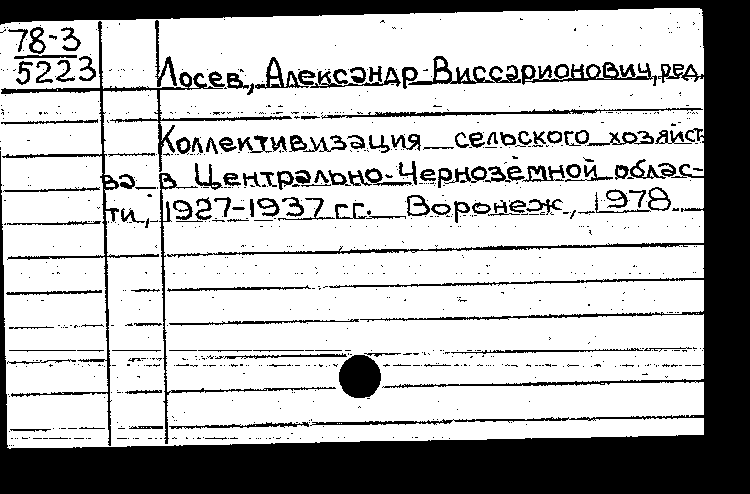 78-3
5223
Лосев, Александр Виссарионович, ред.
Коллективизация сельского хозяйст
ва в Центрально-Черноземной облас-
ти, 1927-1937 гг. Воронеж, 1978